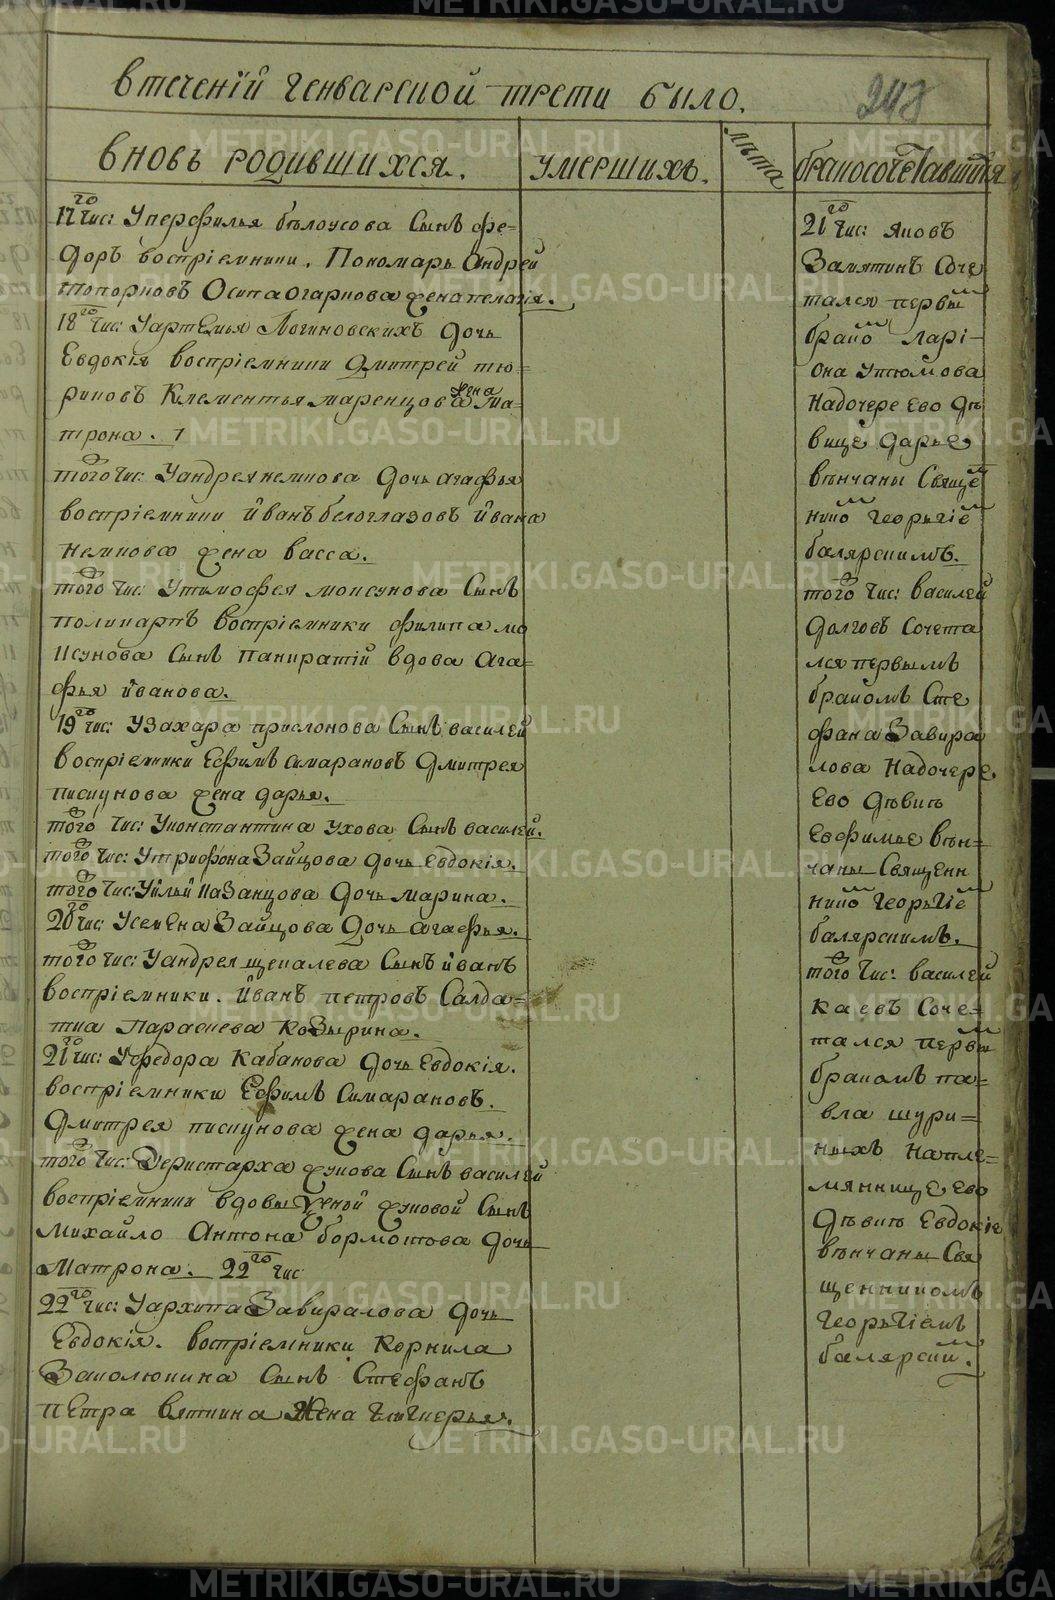 втеченїй генварской трети было.
248
вновь родившихся.
умершихъ.
лѣта
браkосочетавшихся
17го чис: Уперфилья бѣлоусова Сынъ фе=
доръ воспріемники. Пономарь Андрей
топорковъ Осипа огаркова жена пелагія.
18го чис: Уартемья Логиновскихъ дочь
Евдокія воспріемники дмитрей тю=
риковъ Клементья маренцова жена Ма=
трона.
того чис: Уандрея некиова дочь агафья
воспріемники йванъ белоглазовъ йвана
жена васса.
того чис: Утимофея мокгунова Сынъ
поликарпъ воспріемники филипа мо
Сынъ панкратій вдова ага=
фья йванова.
19го чис: Узахара прислонова Сынъ василей
воспріемники Ефимъ симарановъ дмитрея
пискунова жена дарья.
того чис: Уконстантина ухова Сынъ василей.
того чис: Утрифона Зайцова дочь Евдокія.
того чис: Уильи Казанцова дочь марина.
20го чис: Усемена Зайцова дочь агафья.
того чис: Уандрея щепалева Сынъ иванъ
воспріемники. йванъ петровъ Салда=
тка Параскева козырина.
21го чис: Уфедора Кабанова дочь Евдокія.
воспріемники Ефимъ Симарановъ.
дмитрея пискунова жена дарья.
того чис: Уеристарха жукова Сынъ василей
воспріемники вдовы жуковой Сынъ
михайло Антона бормотова дочь
Матрона. 22го чис
22го чис: Уархипа Завиралова дочь
Евдокія. воспріемники Корнила
Заколюкина Сынъ Стефанъ
пЕтра вяткина Жена гликерья.
21го чис: яковъ
Замятинъ Соче
тался первым
браком Ларі=
она Утюмова
на дочере ево дѣ
вице дарье
вѣнчаны Священ
ником георьгіем
балярскимъ.
того чис: василей
долговъ Сочета
лся первымъ
бракомъ Сте
фана Завира
лова надочере
ево дѣвиць
Евфимье вѣн=
чаны Священн
ником георьгіем
балярскимъ.
того чис: василей
каевъ Соче=
тался первым
бракомъ па=
вла шури=
ныхъ наплем=
мяннице ево
дѣвиць Евдокіе
вѣнчаны Свя
щенникомъ
георьгіемъ
балярским.
METRIKI.GASO-URAL.RU